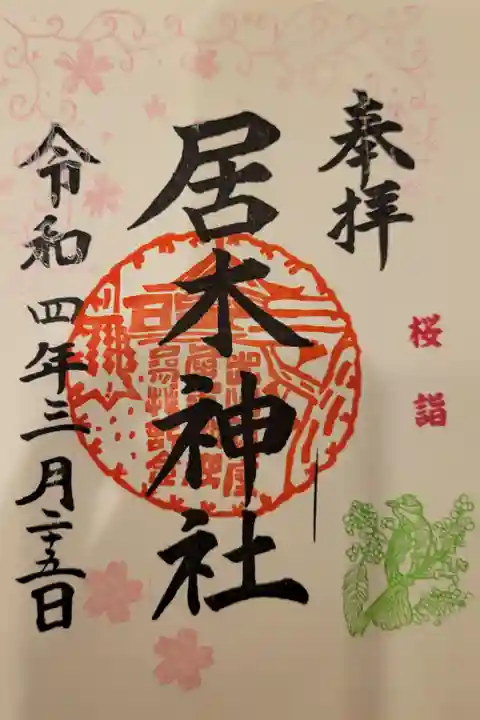 奉拝
桜詣
居木神社
令和四年三月二十五日